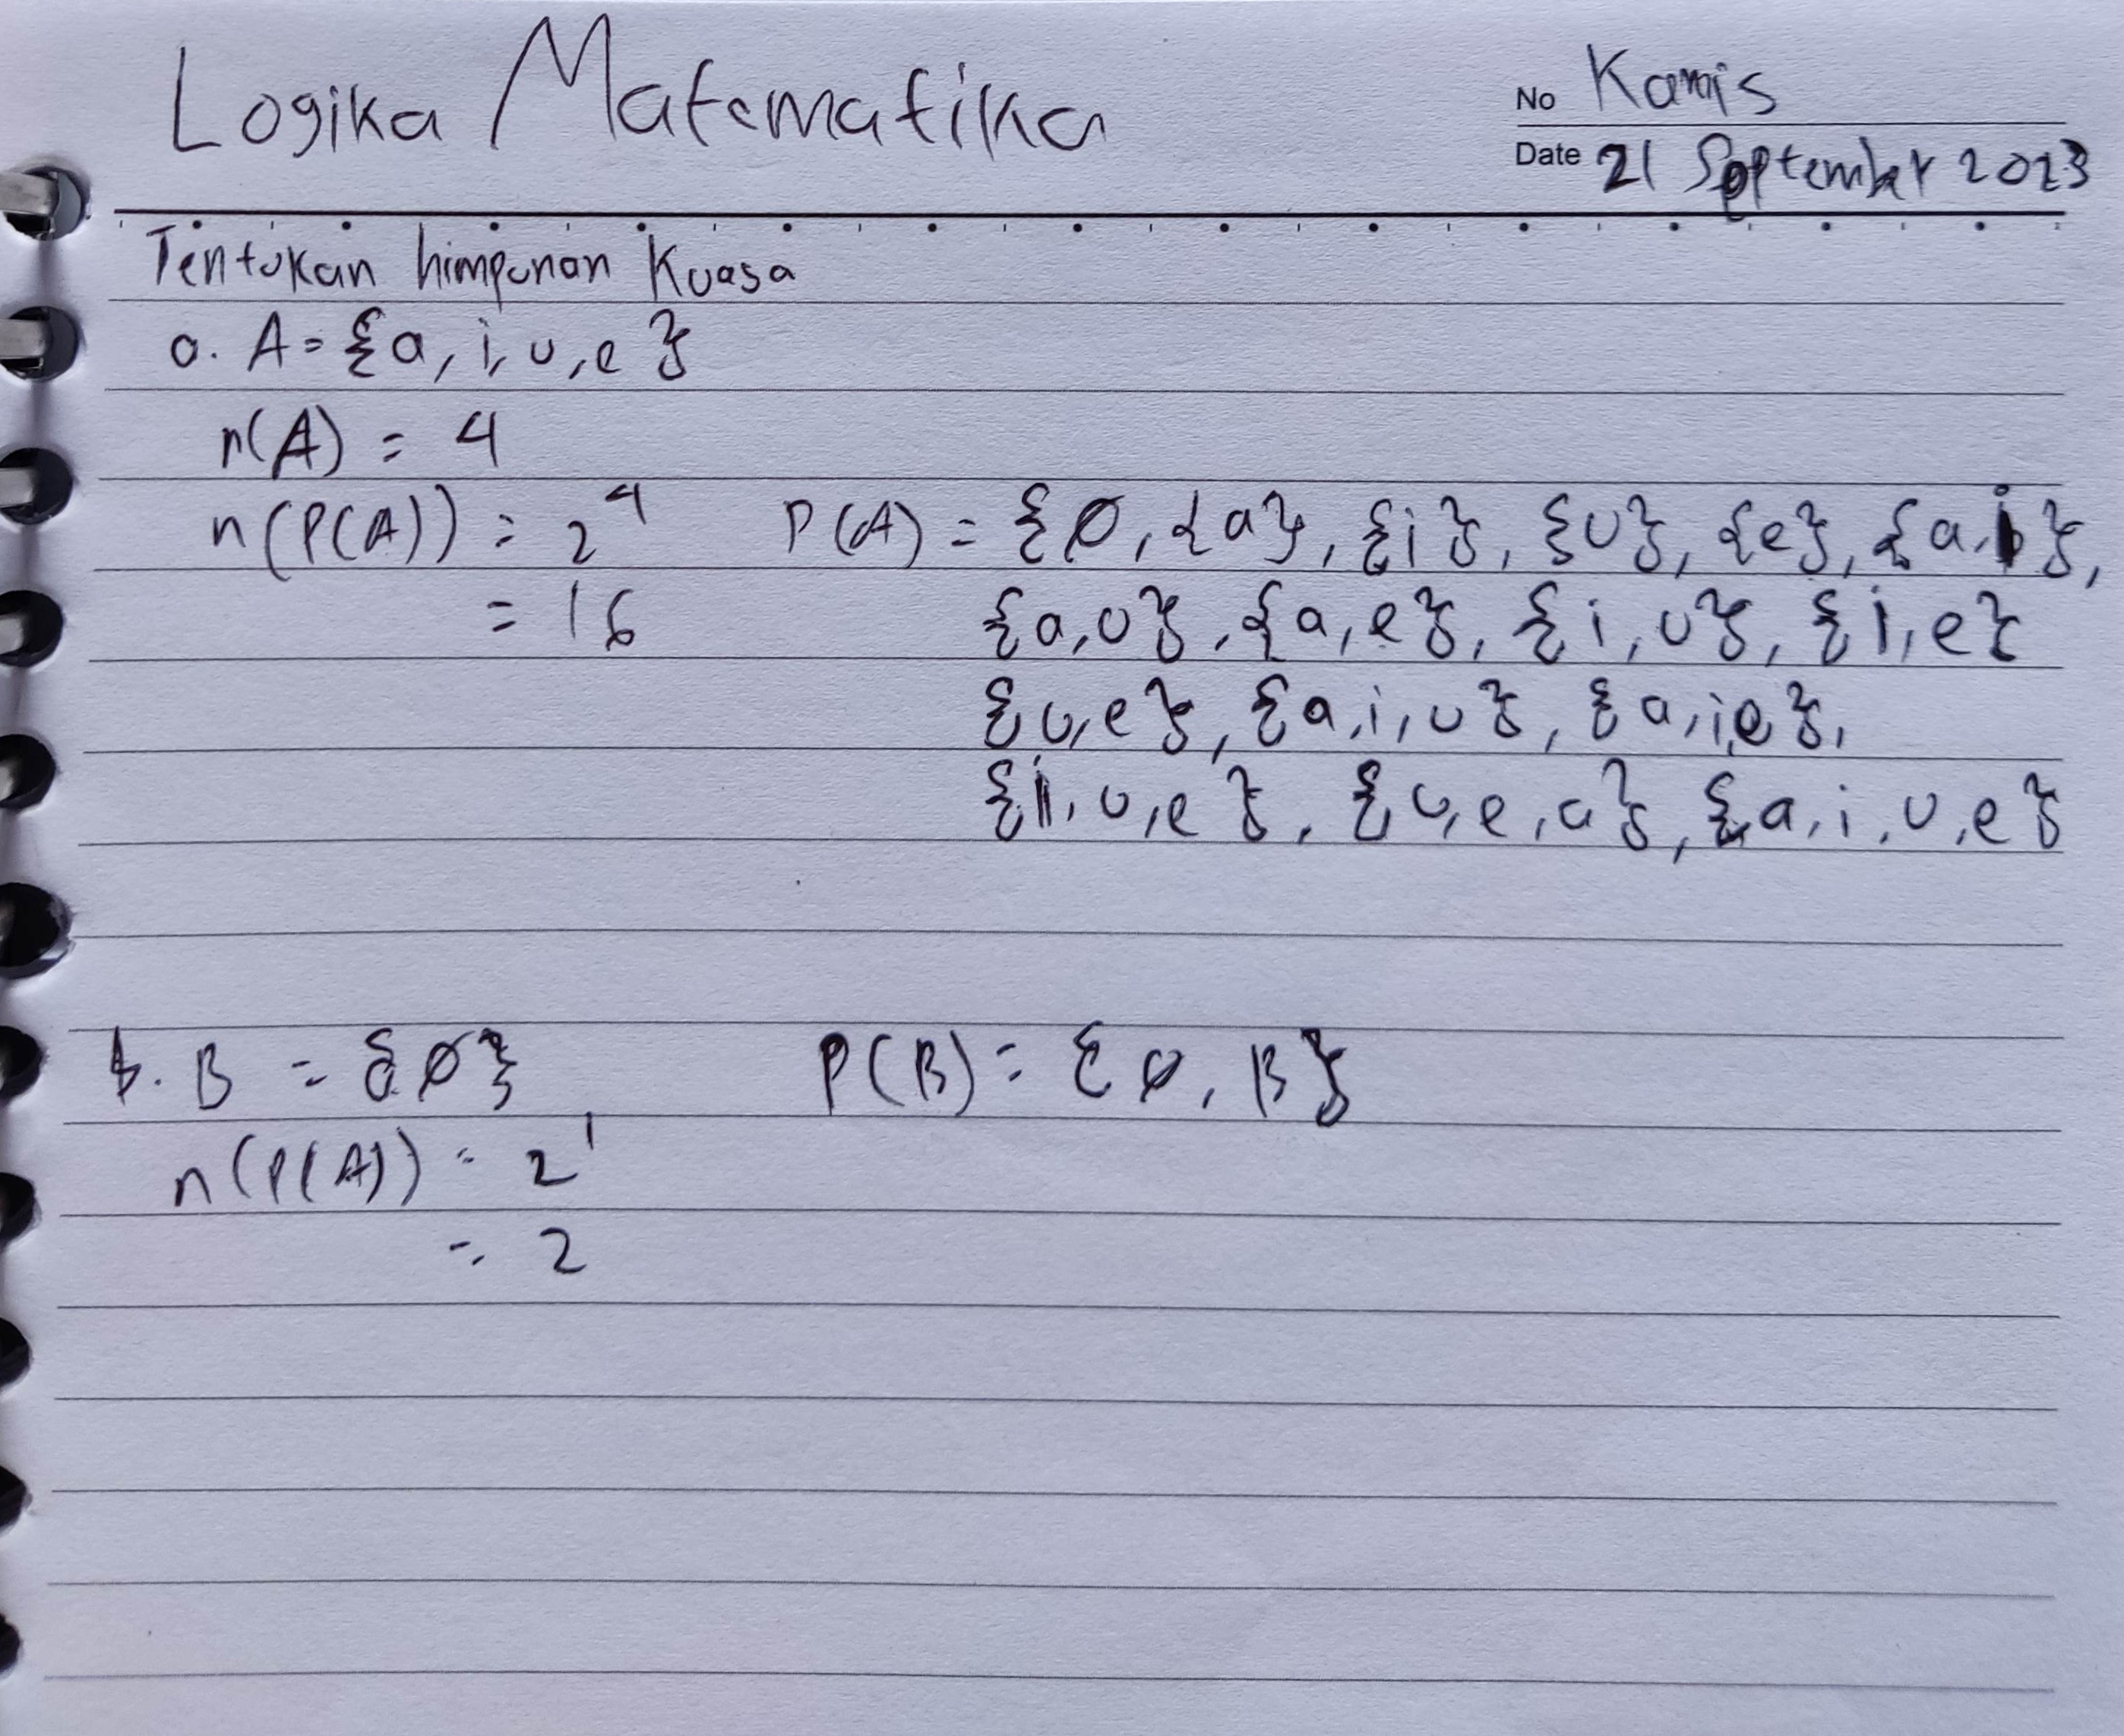 Logika Matematika
No Kamis
Date 21 September 2023
Tentukan himpunan Kuasa
a. A = {a, i, u, e}
n(A) = 4
n(P(A)) = 2⁴ P(A) = {Ø, {a}, {i}, {u}, {e}, {a, i},
= 16 {a, u}, {a, e}, {i, u}, {i, e}
{u, e}, {a, i, u}, {a, i, e},
{i, u, e}, {u, e, a}, {a, i, u, e}
b. B = {Ø} P(B) = {Ø, B}
n(P(A)) = 2¹
= 2